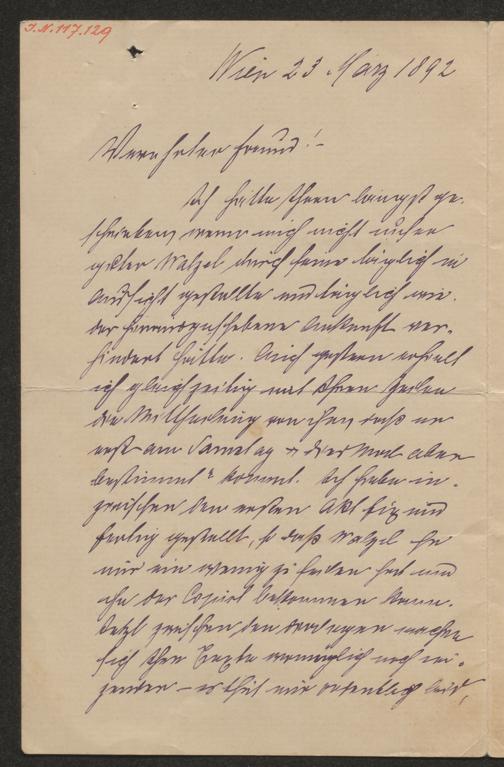 I.N. 117.129
Wien 23 März 1892
Verehrter Freund! –
Ich hätte Ihnen längst ge-
schrieben, wenn mich nicht unser
guter Walzel durch seine täglich in
Aussicht gestellte und täglich wie-
der hinausgeschobene Ankunft ver-
hindert hätte. Auch gestern erhielt
ich gleichzeitig mit Ihren Zeilen
die Mittheilung von ihm daß er
erst am Samstag „diesmal aber
bestimmt“ kommt. Ich habe in-
zwischen den ersten Akt fix und
fertig gestellt, so daß Walzel
nur ein wenig zu feilen hat und
ihn der Copist bekommen kann.
Jetzt zwischen den
sich Ihre Texte womöglich noch rei-
zender – es thut mir ordentlich leid,